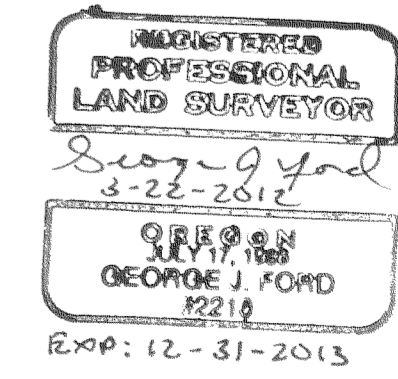 REGISTERED
PROFESSIONAL
LAND SURVEYOR
George J Ford
3-22-2012
OREGON
JULY 17,
GEORGE J. FORD
#2210
EXP: 12-31-2013